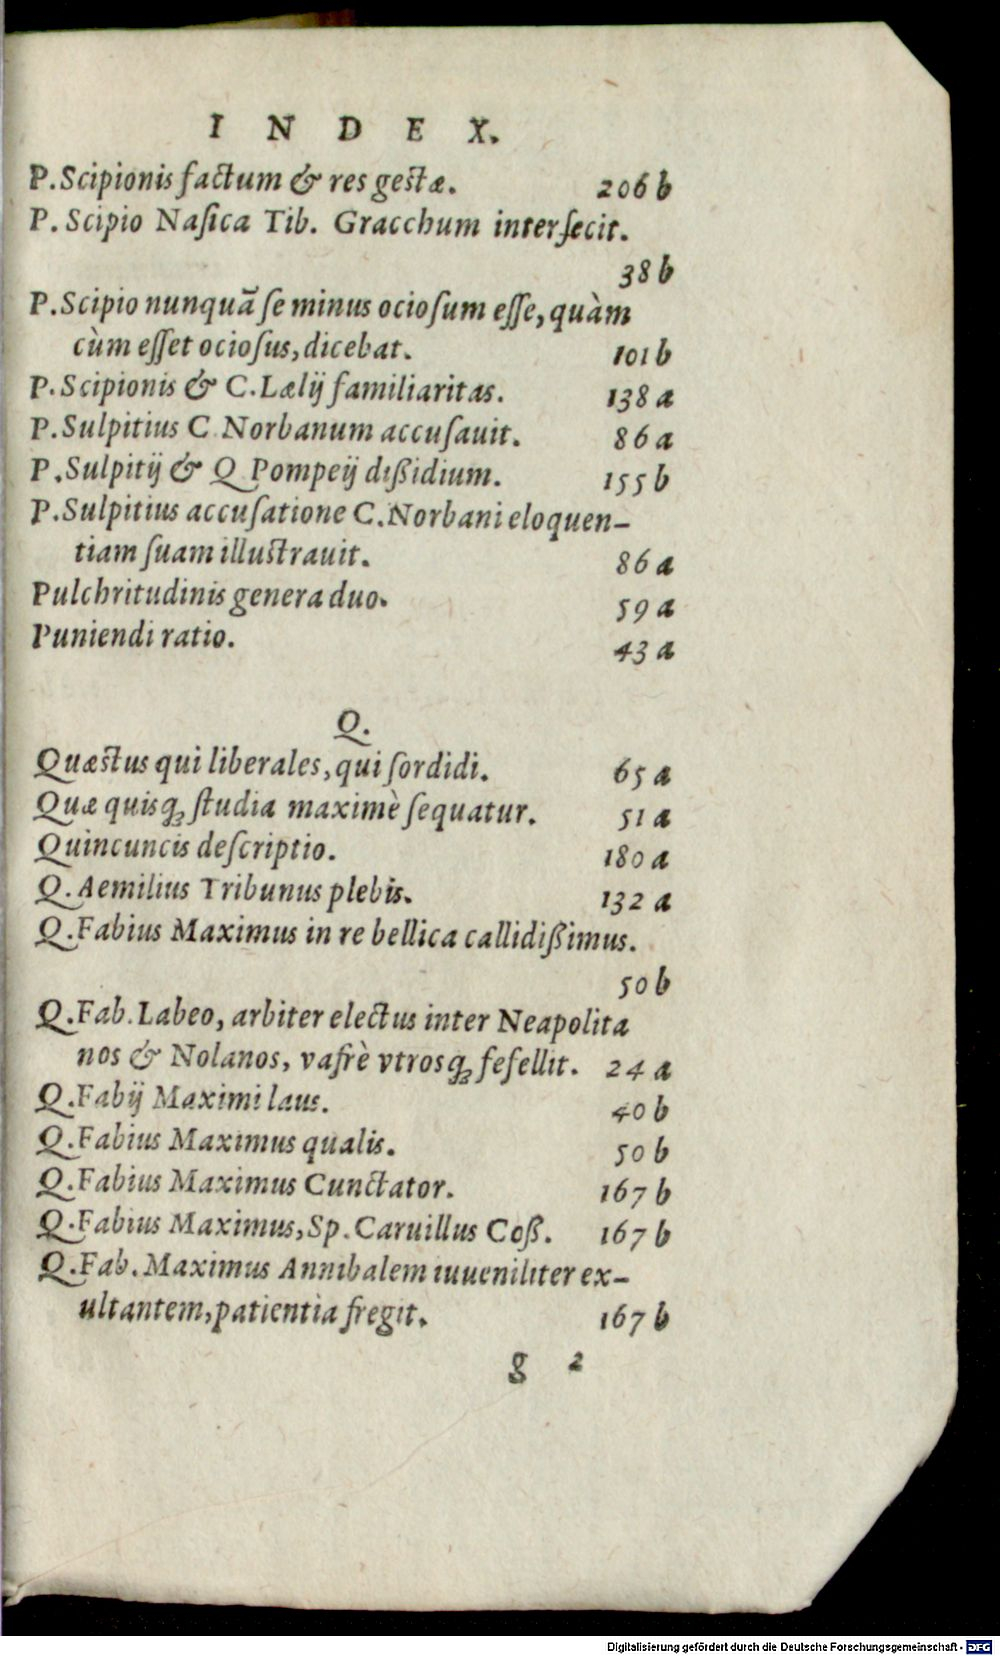 INDEX.
P. Scipionis factum & res gestæ. 206 b
P. Scipio Naſica Tib. Gracchum interfecit.
38 b
P. Scipio nunquā ſe minus ocioſum eſſe, quàm
cùm eſſet ocioſus, dicebat. 101 b
P. Scipionis & C. Lælij familiaritas. 138 a
P. Sulpitius C Norbanum accuſauit. 86 a
P. Sulpitij & Q Pompeij dißidium. 155 b
P. Sulpitius accuſatione C. Norbani eloquen-
tiam ſuam illustrauit. 86 a
Pulchritudinis genera duo. 59 a
Puniendi ratio. 43 a
Q.
Quæstus qui liberales, qui ſordidi. 65 a
Quæ quisq; ſtudia maximè ſequatur. 51 a
Quincuncis deſcriptio. 180 a
Q. Aemilius Tribunus plebis. 132 a
Q. Fabius Maximus in re bellica callidißimus.
50 b
Q. Fab. Labeo, arbiter electus inter Neapolita
nos & Nolanos, vafrè vtrosq; fefellit. 24 a
Q. Fabij Maximi laus. 40 b
Q. Fabius Maximus qualis. 50 b
Q. Fabius Maximus Cunctator. 167 b
Q. Fabius Maximus, Sp. Caruillus Coß. 167 b
Q. Fab. Maximus Annibalem iuueniliter ex-
ultantem, patientia fregit. 167 b
g 2
Digitalisierung gefördert durch die Deutsche Forschungsgemeinschaft - DFG